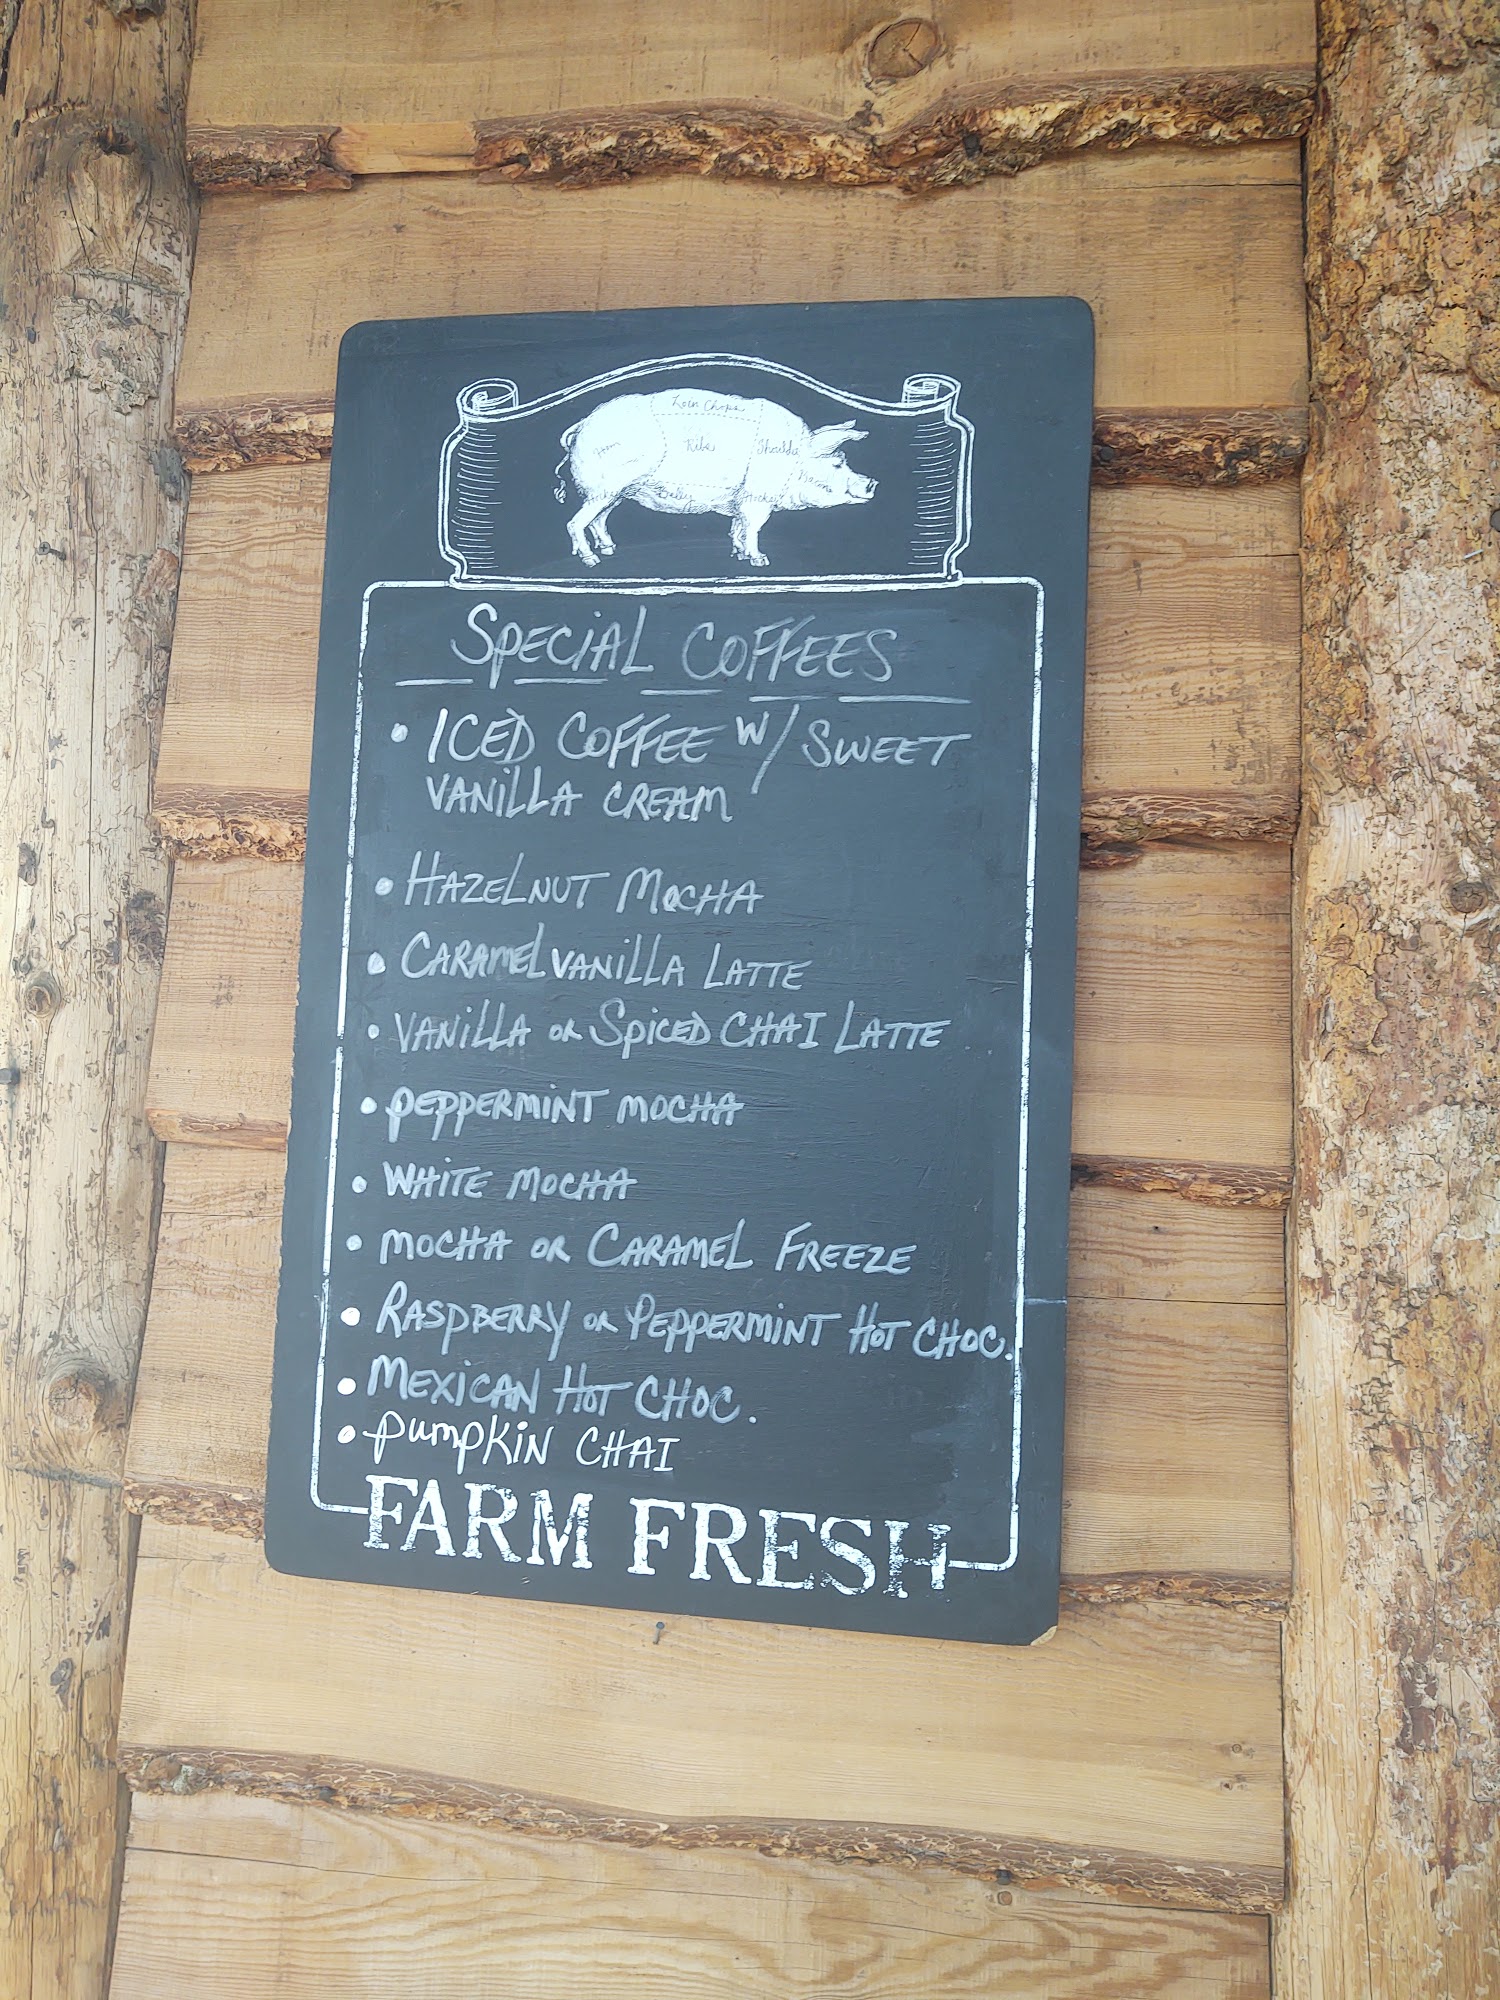 Loin Chops
Ham
Ribs
Shoulder
Bacon
Belly
Hocks
SPECIAL COFFEES
• ICED COFFEE W/ SWEET
VANILLA CREAM
• HAZELNUT MOCHA
• CARAMEL VANILLA LATTE
• VANILLA OR SPICED CHAI LATTE
• PEPPERMINT MOCHA
• WHITE MOCHA
• MOCHA OR CARAMEL FREEZE
• RASPBERRY OR PEPPERMINT HOT CHOC.
• MEXICAN HOT CHOC.
• PUMPKIN CHAI
FARM FRESH